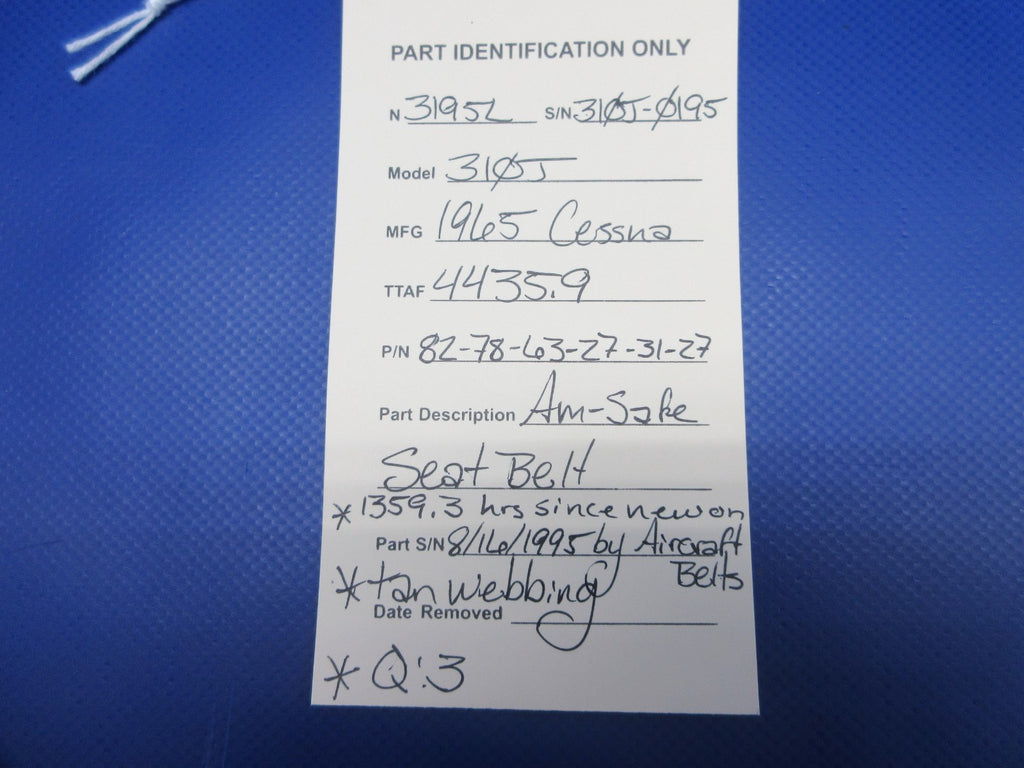 PART IDENTIFICATION ONLY
N 3195L S/N 310J-0195
Model 310J
MFG 1965 Cessna
TTAF 4435.9
P/N 82-78-63-27-31-27
Part Description Am-Safe
Seat Belt
* 1359.3 hrs since new on
Part S/N 8/16/1995 by Aircraft
Belts
* tan webbing
Date Removed
* Q:3